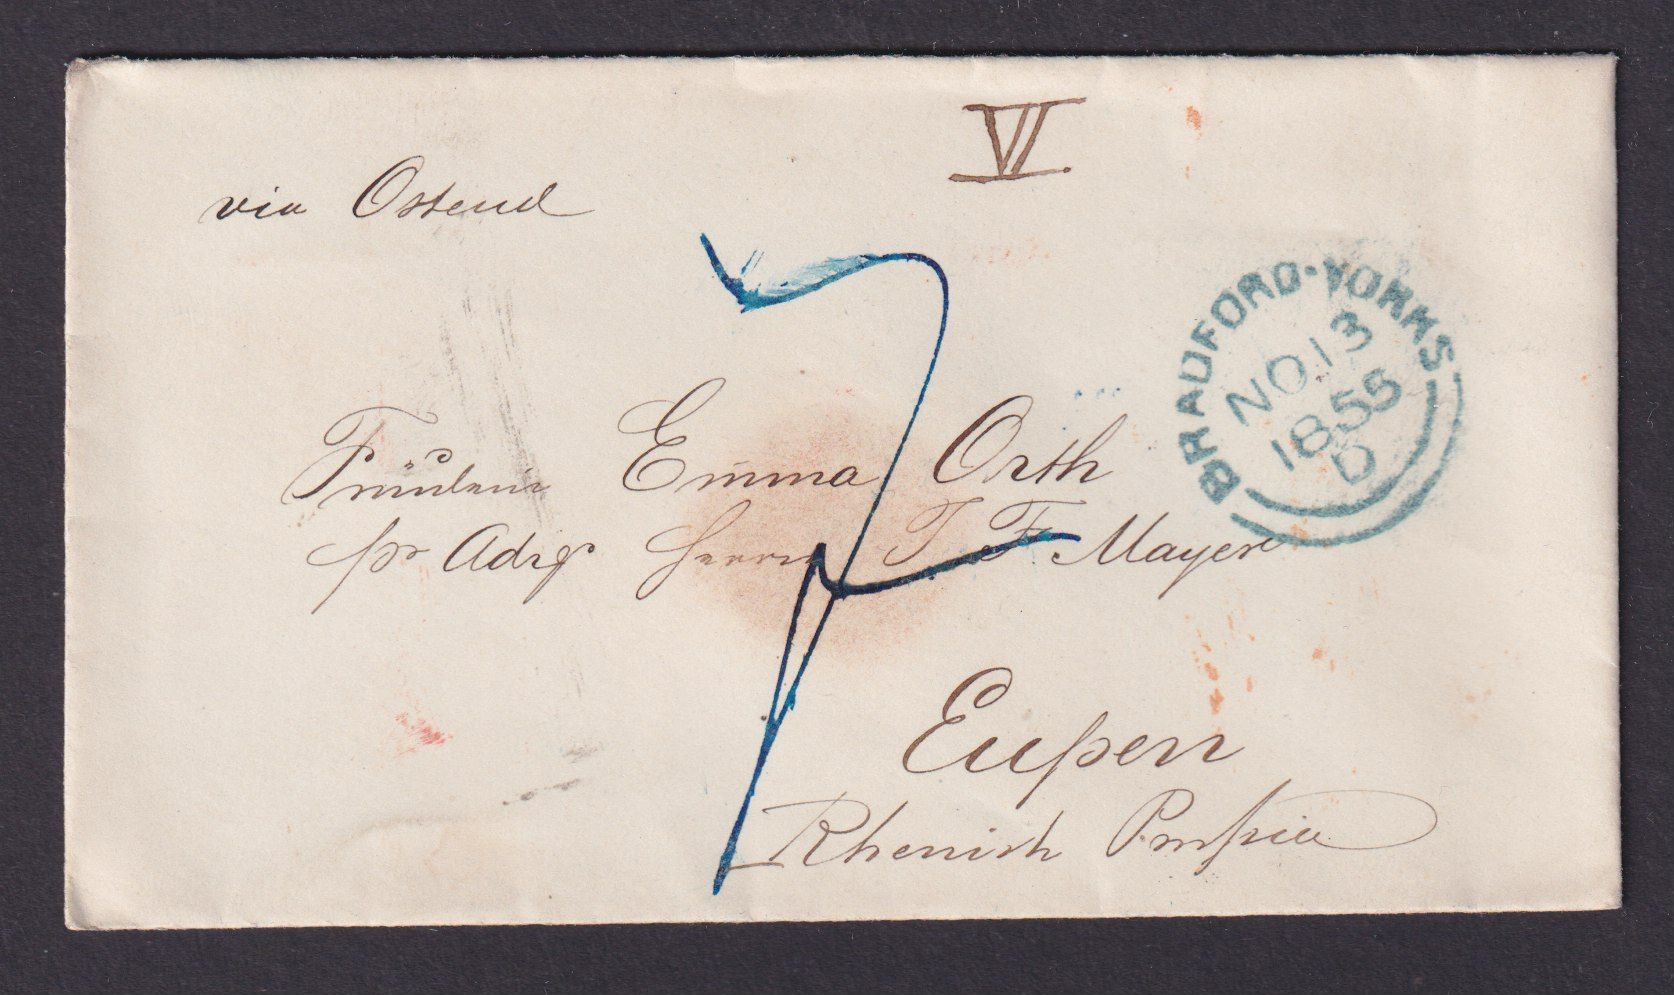 VI
via Ostend
BRADFORD·YORKS
NO 13
1855
D
7
Fräulein Emma Orth
pr Adrs Herrn J F Mayer
Eupen
Rhenish Prussia